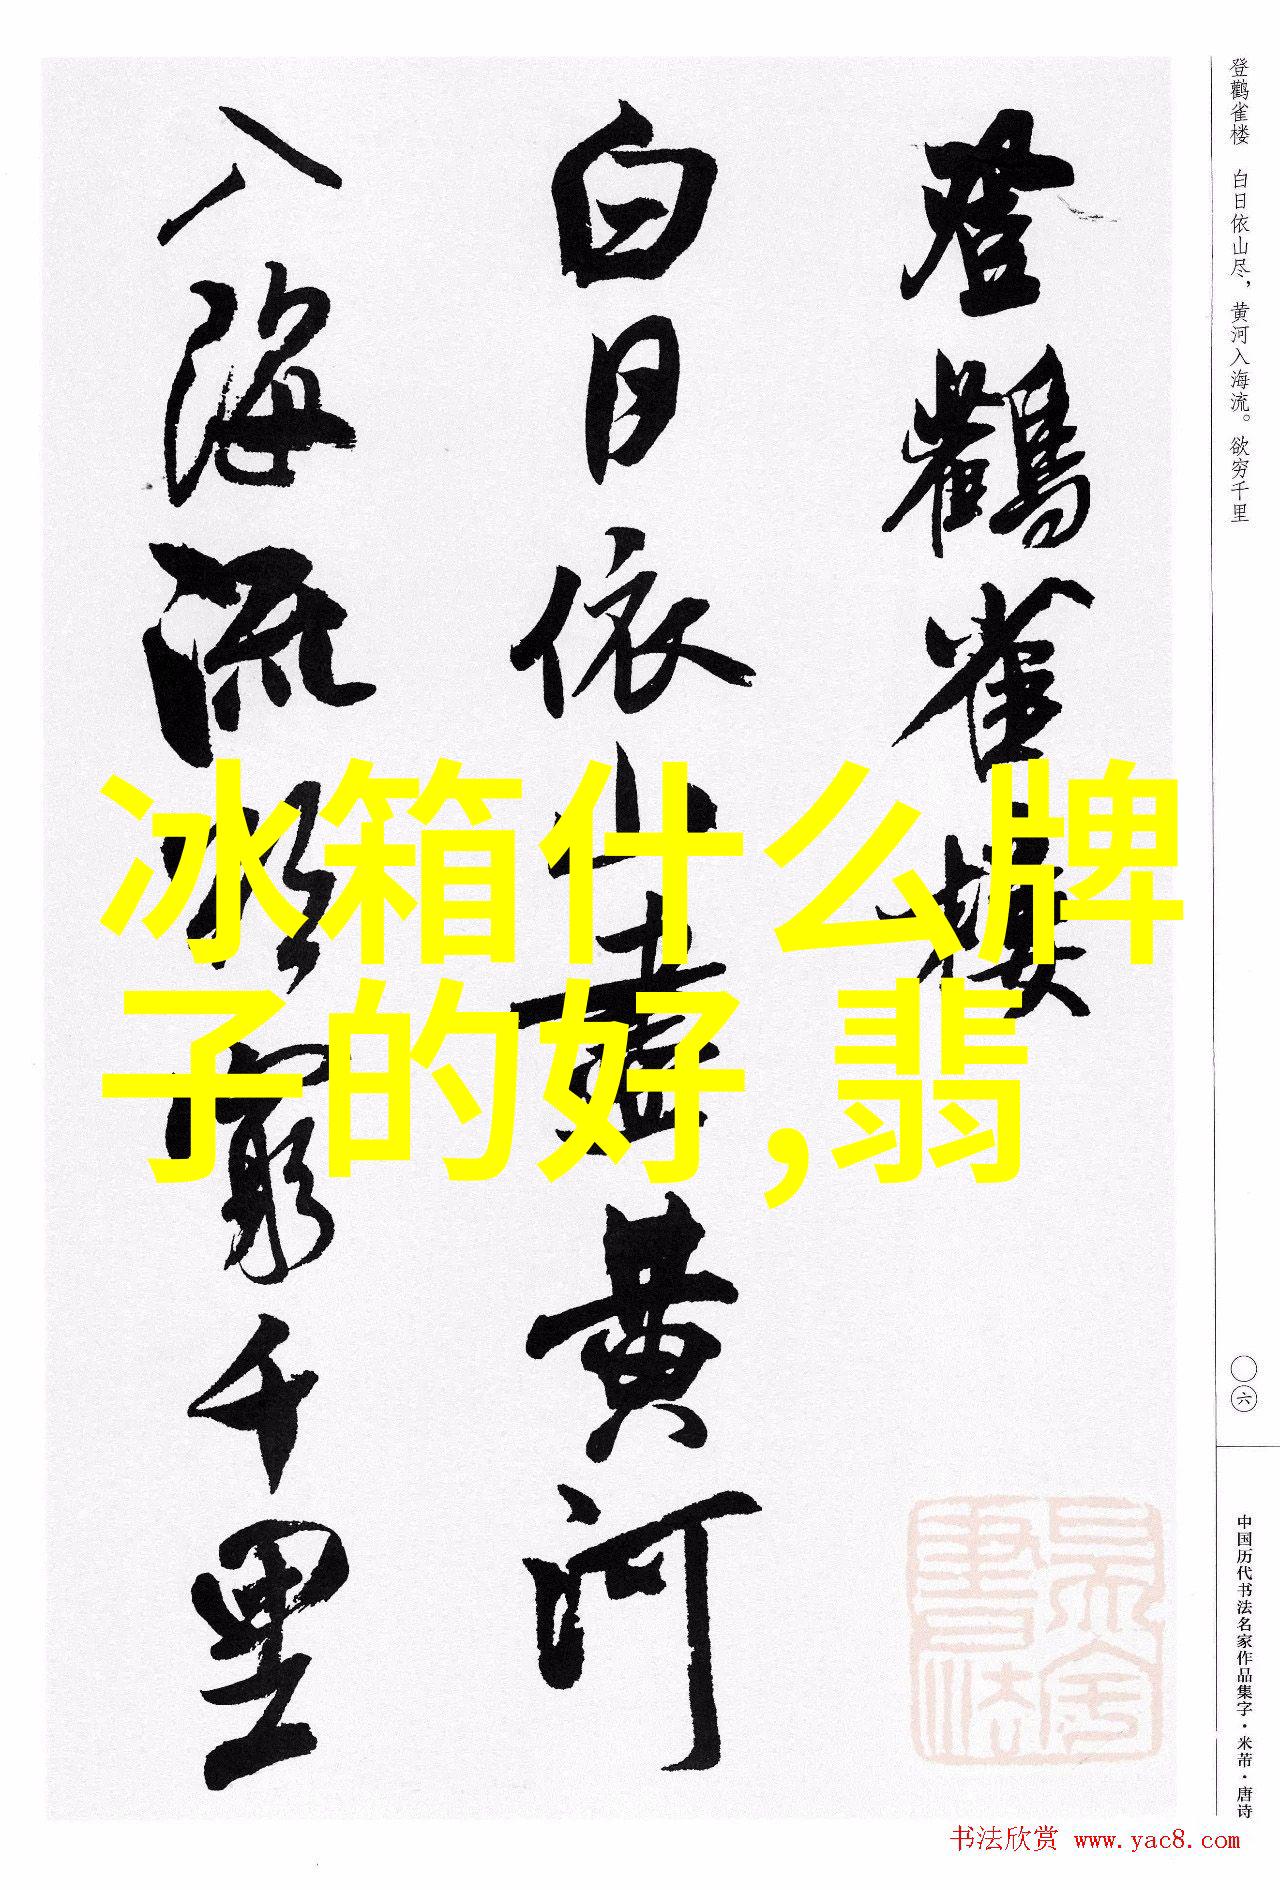 登鹳雀楼 白日依山尽，黄河入海流。欲穷千里
登鸛雀樓
白日依山盡黄河
入海流欲窮千里
冰箱什么牌
子的好,翡
〇六
中国历代书法名家作品集字·米芾·唐诗
書法
书法欣赏 www.yac8.com